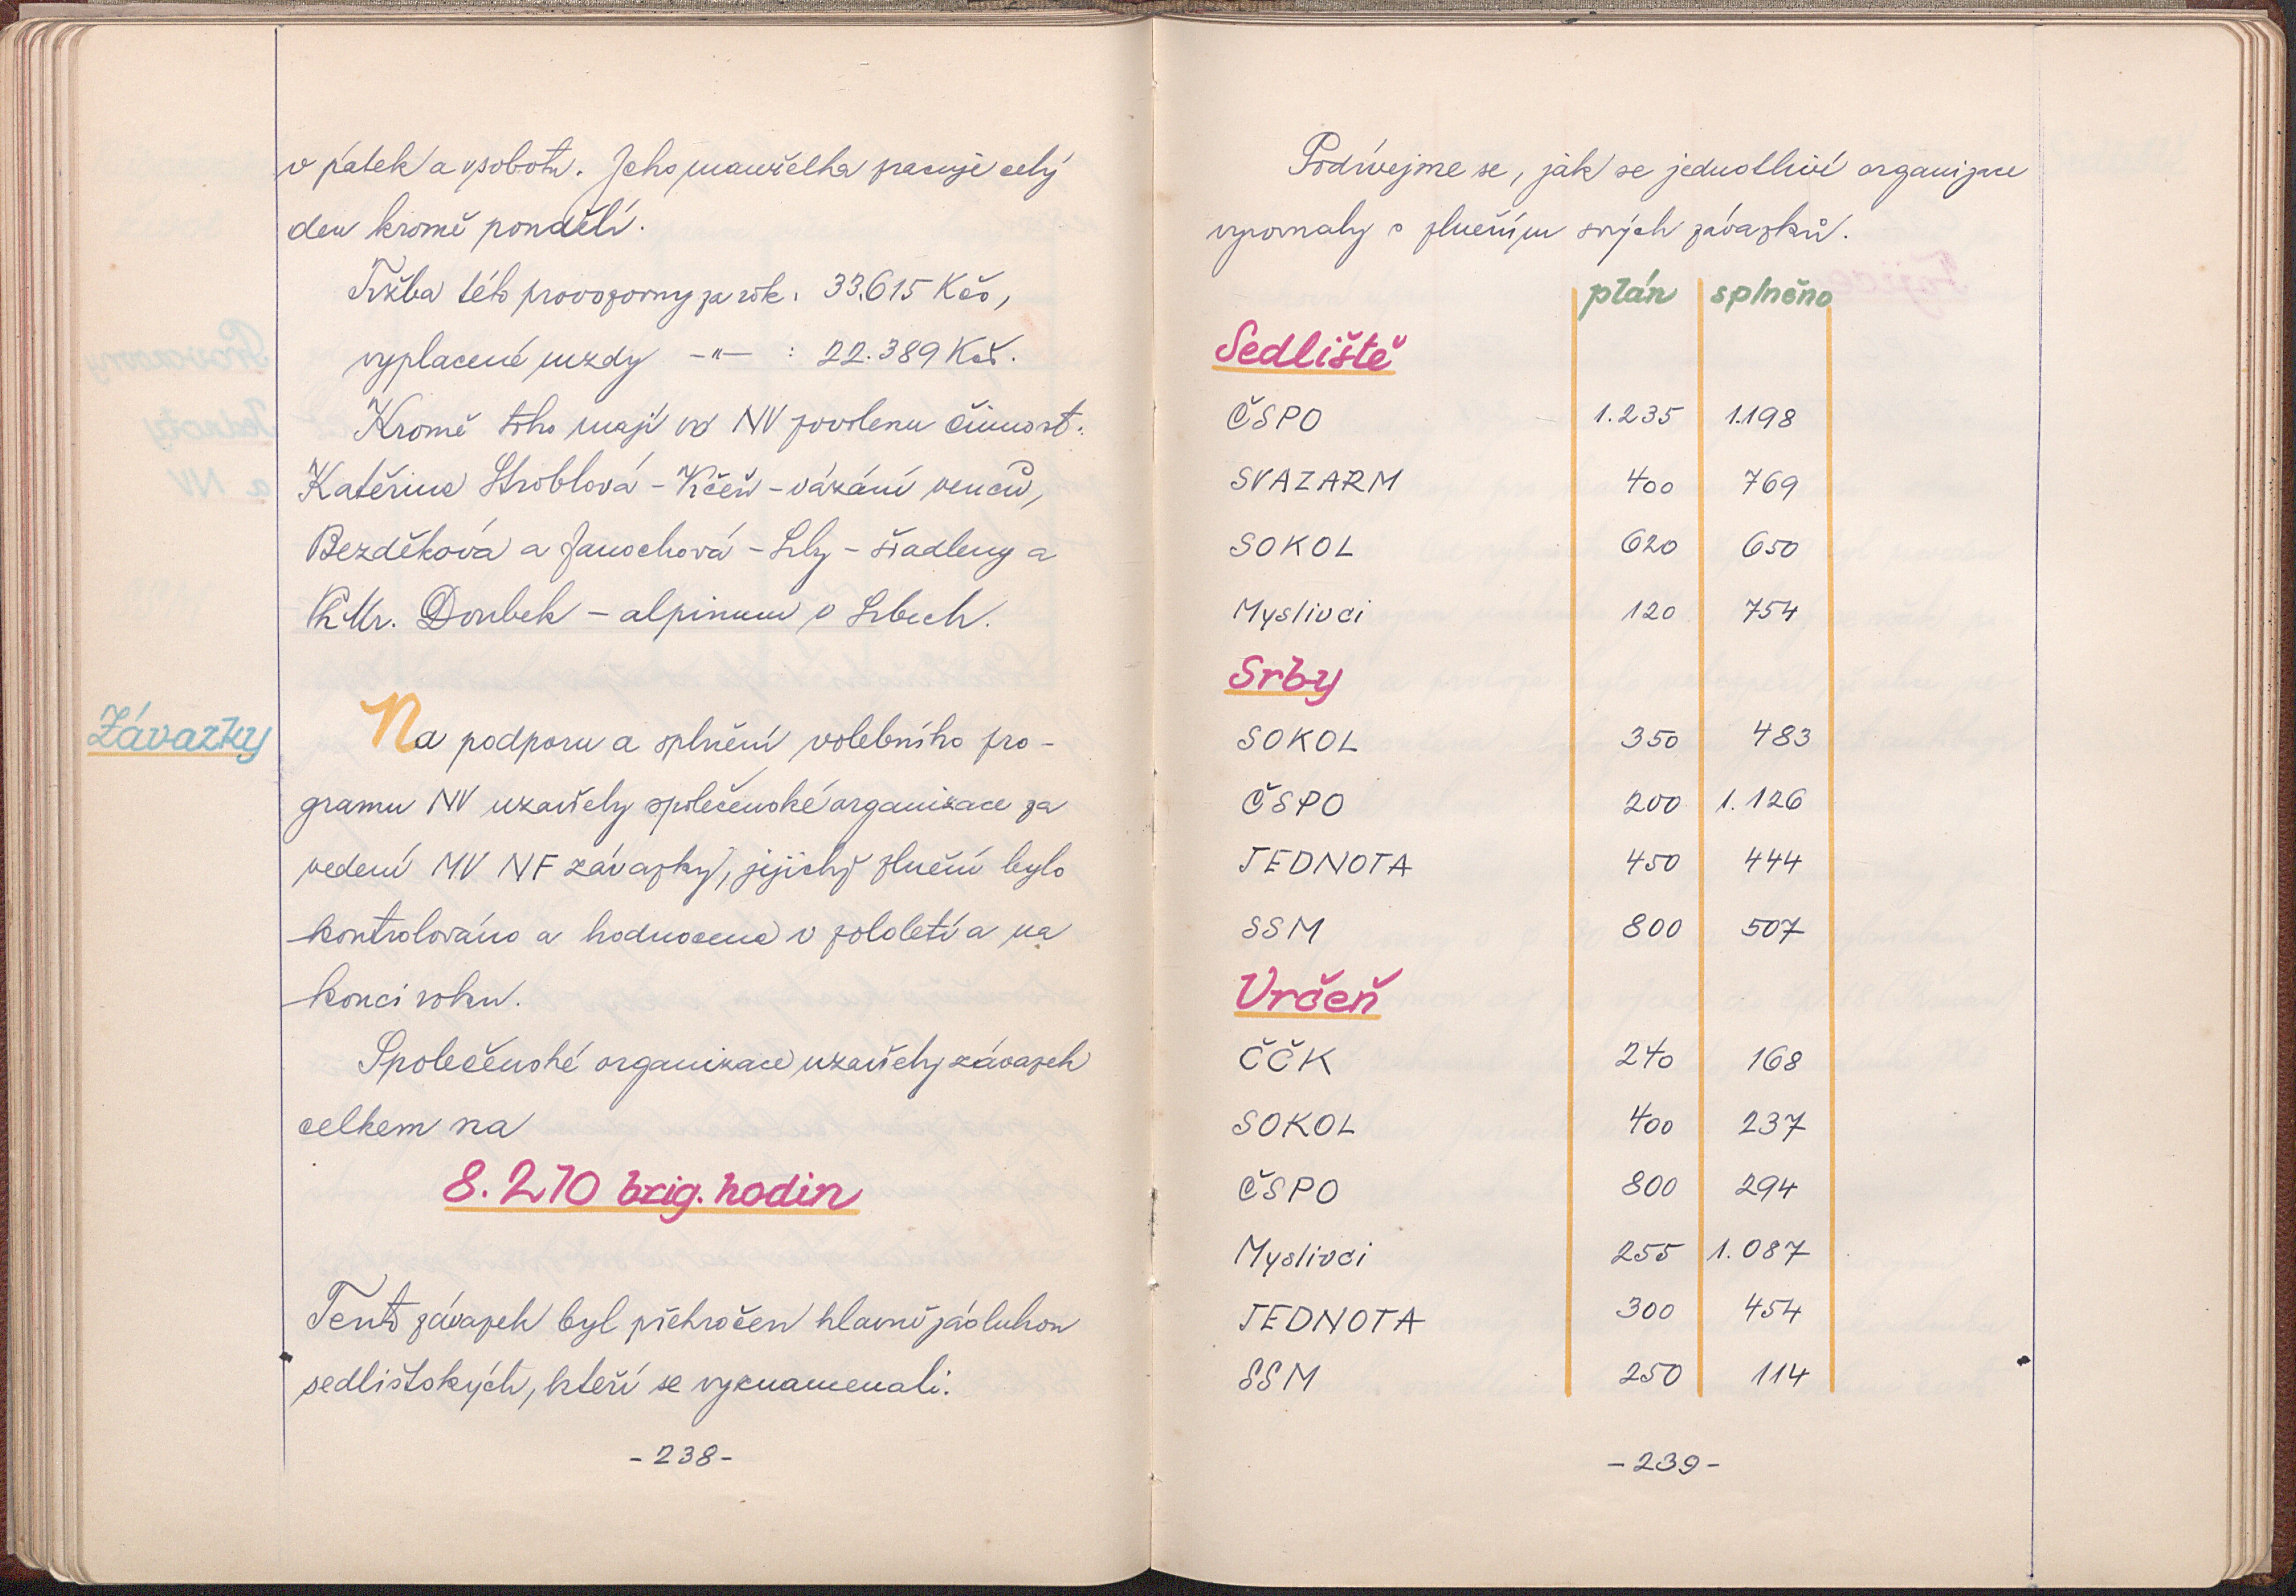 v pátek a v sobotu. Jeho manželka pracuje celý
den kromě pondělí.
Tržba této provozovny za rok: 33.615 Kčs,
vyplacené mzdy -"- : 22.389 Kčs.
Kromě toho mají od NV povolenu činnost:
Kateřina Stroblová - Vrčeň - vázání venců,
Bezděková a Janochová - Srby - švadleny a
PhMr. Doubek - alpinum v Srbech.
Závazky
Na podporu a splnění volebního pro-
gramu NV uzavřely společenské organizace za
vedení MV NF závazky, jejichž plnění bylo
kontrolováno a hodnoceno v pololetí a na
konci roku.
Společenské organizace uzavřely závazek
celkem na
8.270 brig. hodin
Tento závazek byl překročen hlavně zásluhou
sedlišťských, kteří se vyznamenali.
-238-
Podívejme se, jak se jednotlivé organizace
vyrovnaly s plněním svých závazků.
plán splněno
Sedliště
ČSPO 1.235 1.198
SVAZARM 400 769
SOKOL 620 650
Myslivci 120 754
Srby
SOKOL 350 483
ČSPO 200 1.126
JEDNOTA 450 444
SSM 800 507
Vrčeň
ČČK 240 168
SOKOL 400 237
ČSPO 800 294
Myslivci 255 1.087
JEDNOTA 300 454
SSM 250 114
-239-